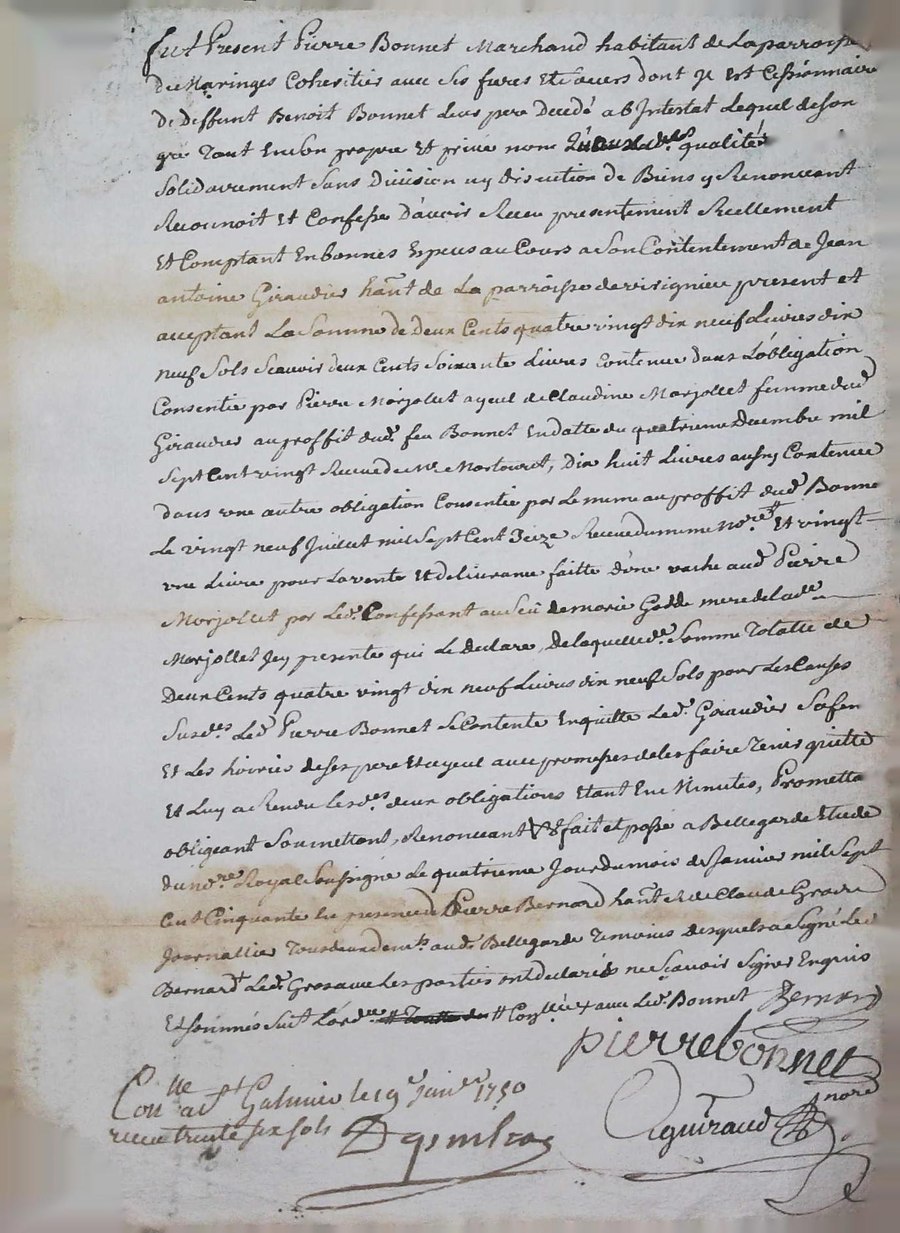 fut Present Pierre Bonnet Marchand habitant de La parroisse
de Maringes Coheritier avec ses freres Et sœurs dont Il Est Cessionnaire
De Deffunt Benoit Bonnet Leur pere Decedé ab Intestat Lequel de son
gré Tant En son propre Et privé nom qualités
Solidairement Sans Division ny discution de Biens y Renonceant
Reconnoit Et Confesse D'avoir Receu presentement Reellement
Et Comptant En bonnes Especes au Cours a Son Contentement de Jean
antoine Giraudier hant de La parroisse de virignieu present et
acceptant La Somme de deux Cents quatre vingt dix neuf Livres dix
neuf Sols Scavoir deux Cents Soixante Livres Contenue dans L'obligation
Consentie par Pierre Morjollet ayeul de Claudine Morjollet femme dud
Giraudier au proffit dud. feu Bonnet En datte du quatrieme Decembre mil
Sept Cent vingt Receue de Me Mortouret, Dix huit Livres aussy Contenue
dans une autre obligation Consentie par Le meme au proffit dud Bonne
Le vingt neuf Juillet mil Sept Cent Seize Receue du meme nore. Et vingt
une Livre pour La vente Et delivrance faitte d'une vache aud Pierre
Morjollet par Led. Confessant au Sceu de marie Godde mere de lade
Morjollet Icy presente qui Le declare, de laquelle de. Somme Totalle de
Deux Cents quatre vingt dix neuf Livres dix neuf Sols pour Les Causes
Susdes Led Pierre Bonnet Se Contente En quitte Led. Giraudier Sa fem
Et Les hoiries de Ses pere Et ayeul avec promesse de les faire Tenir quitte
Et Luy a Rendu Lesdes deux obligations Etant En Minutes, Promett
obligeant Soumettant, Renonceant &a fait et passé a Bellegarde Etude
du nore Royal Soussigné Le quatrieme Jour du mois de Janvier mil Sept
Cent Cinquante En presence de Pierre Bernard hant et de Claude
Journallier Tous deux demts. aud. Bellegarde Temoins desquels a Signé Led
Bernard Led. avec Les parties ont declarés ne Scavoir Signer Enquis
Et Sommés Suit L'orde avec Led. Bonnet Bernard
pierre bonnet
Conlle a St Galmier le 19e janer 1750
receu trente six sols
guiraud nore